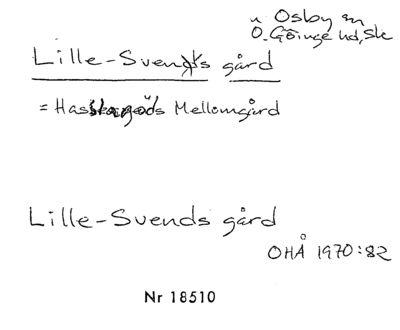 u Osby sn
Ö. Göinge hd, Sk
Lille-Svens gård
= Mellomgård
Lille-Svends gård
OHÅ 1970:82
Nr 18510